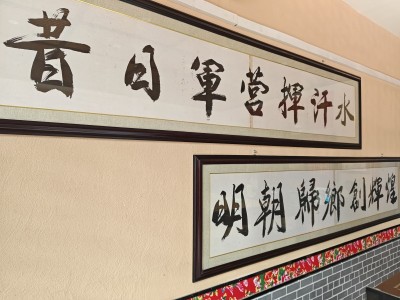 昔日軍营揮汗水
明朝歸鄉創輝煌